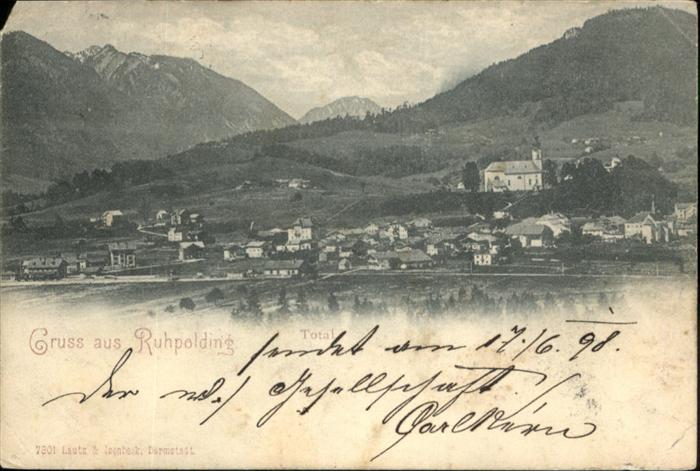 Gruss aus Ruhpolding
Total
sendet am 17/6. 98.
Der Gesellschaft
Carl Kern
7301 Lautz & Isenbeck, Darmstadt.